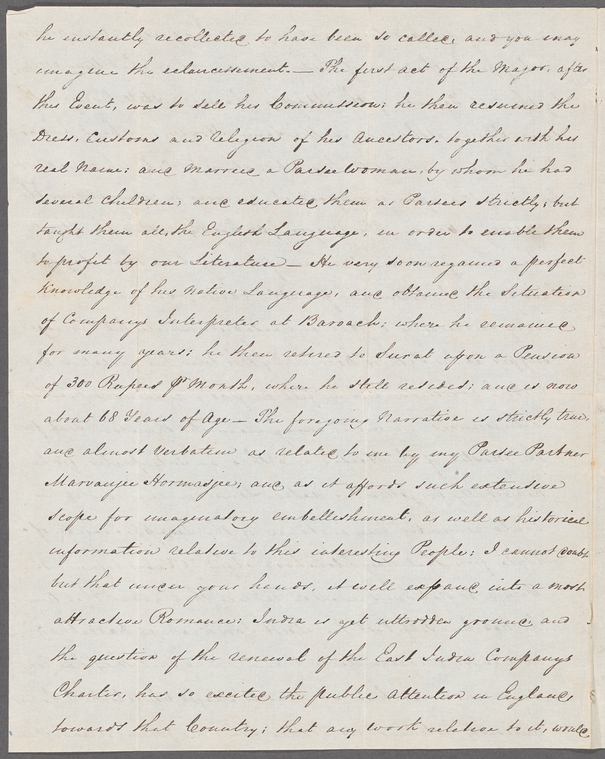 he instantly recollected to have been so called, and you may
imagine the eclaircissement. — The first act of the Major, after
this Event, was to sell his Commission; he then resumed the
Dress, Customs and religion of his Ancestors, together with his
real Name; and married a Parsee woman, by whom he had
several Children; and educated them as Parsees strictly; but
taught them all, the English Language, in order to enable them
to profit by our Literature — He very soon regained a perfect
knowledge of his native Language, and obtained the Situation
of Companys Interpreter at Baroach; where he remained
for many years; he then retired to Surat upon a Pension
of 300 Rupees pr Month, where he still resides; and is now
about 68 Years of Age — The foregoing Narrative is strictly true,
and almost verbatim as related to me by my Parsee Partner
Marvanjee Hormasjee; and as it affords such extensive
scope for imaginatory embellishment, as well as historical
information relative to this interesting People; I cannot doubt
but that under your hands, it will expand into a most
attractive Romance: India is yet untrodden ground, and
the question of the renewal of the East India Companys
Charter, has so excited the public attention in England
towards that Country; that any work relative to it, would